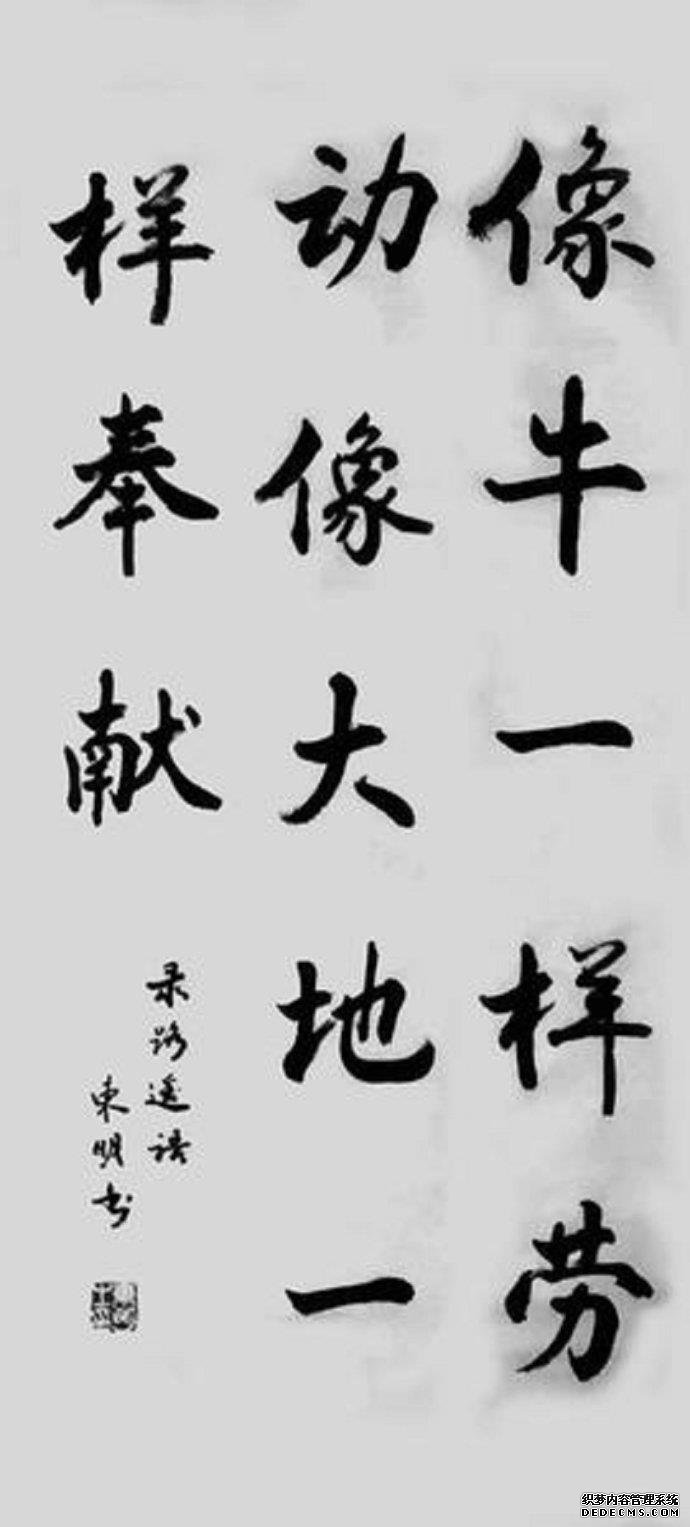 像牛一样劳
动像大地一
样奉献
录路遥语
東明书
织梦内容管理系统
DEDECMS.COM